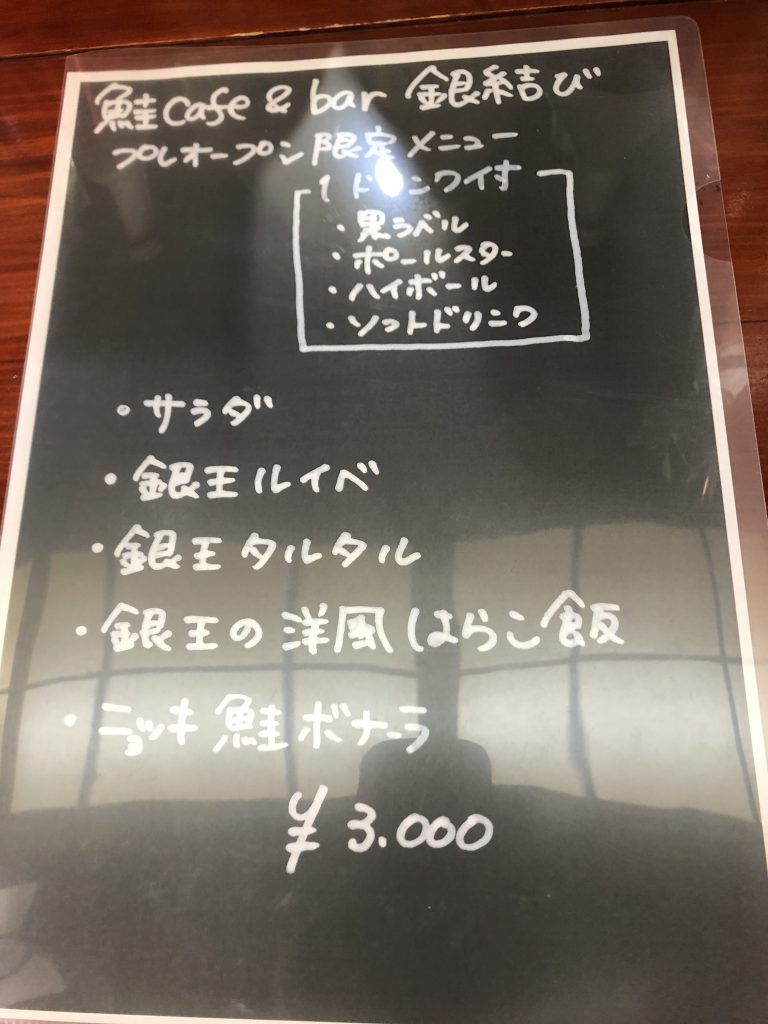 鮭cafe & bar 銀結び
プレオープン限定メニュー
1ドリンク付
・黒ラベル
・ポールスター
・ハイボール
・ソフトドリンク
・サラダ
・銀王ルイベ
・銀王タルタル
・銀王の洋風はらこ飯
・ニョッキ鮭ボナーラ
¥3.000